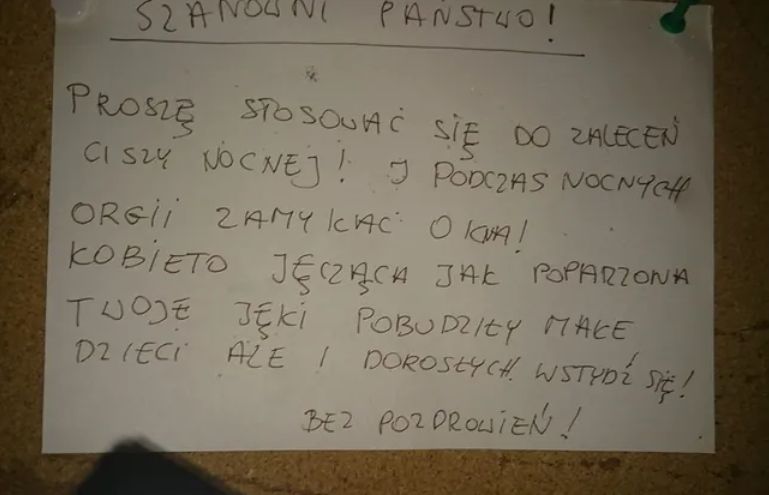 SZANOWNI PAŃSTWO!
PROSZĘ STOSOWAĆ SIĘ DO ZALECEŃ
CISZY NOCNEJ! I PODCZAS NOCNYCH
ORGII ZAMYKAĆ OKNA!
KOBIETO JĘCZĄCA JAK POPARZONA
TWOJE JĘKI POBUDZIŁY MAŁE
DZIECI ALE I DOROSŁYCH. WSTYDŹ SIĘ!
BEZ POZDROWIEŃ!